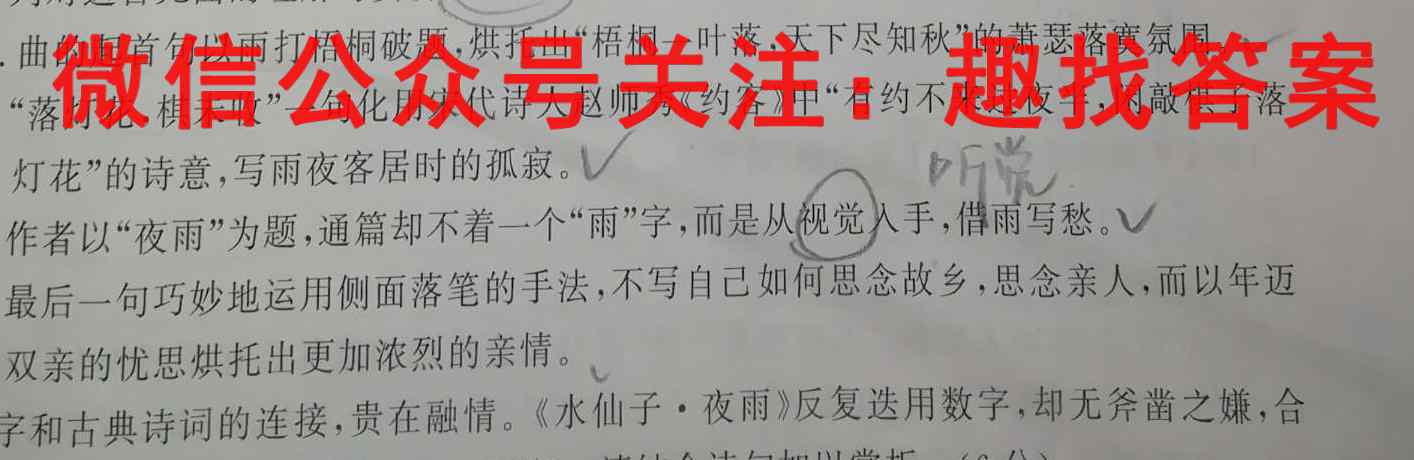 曲的首句以雨打梧桐破题,烘托出“梧桐一叶落,天下尽知秋”的萧瑟落寞氛围。
微信公众号关注:趣找答案
“落灯花,棋未收”一句化用宋代诗人赵师秀《约客》中“有约不来过夜半,闲敲棋子落
灯花”的诗意,写雨夜客居时的孤寂。
听觉
作者以“夜雨”为题,通篇却不着一个“雨”字,而是从视觉入手,借雨写愁。
最后一句巧妙地运用侧面落笔的手法,不写自己如何思念故乡,思念亲人,而以年迈
双亲的忧思烘托出更加浓烈的亲情。
字和古典诗词的连接,贵在融情。《水仙子·夜雨》反复迭用数字,却无斧凿之嫌,合